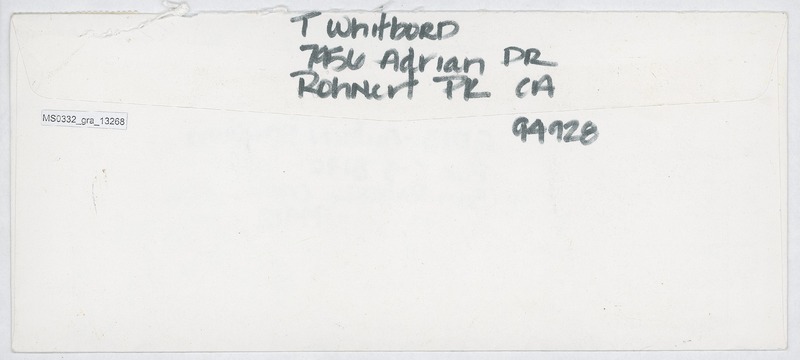 T Whitbord
7456 Adrian DR
Rohnert PK CA
94928
MS0332_gra_13268